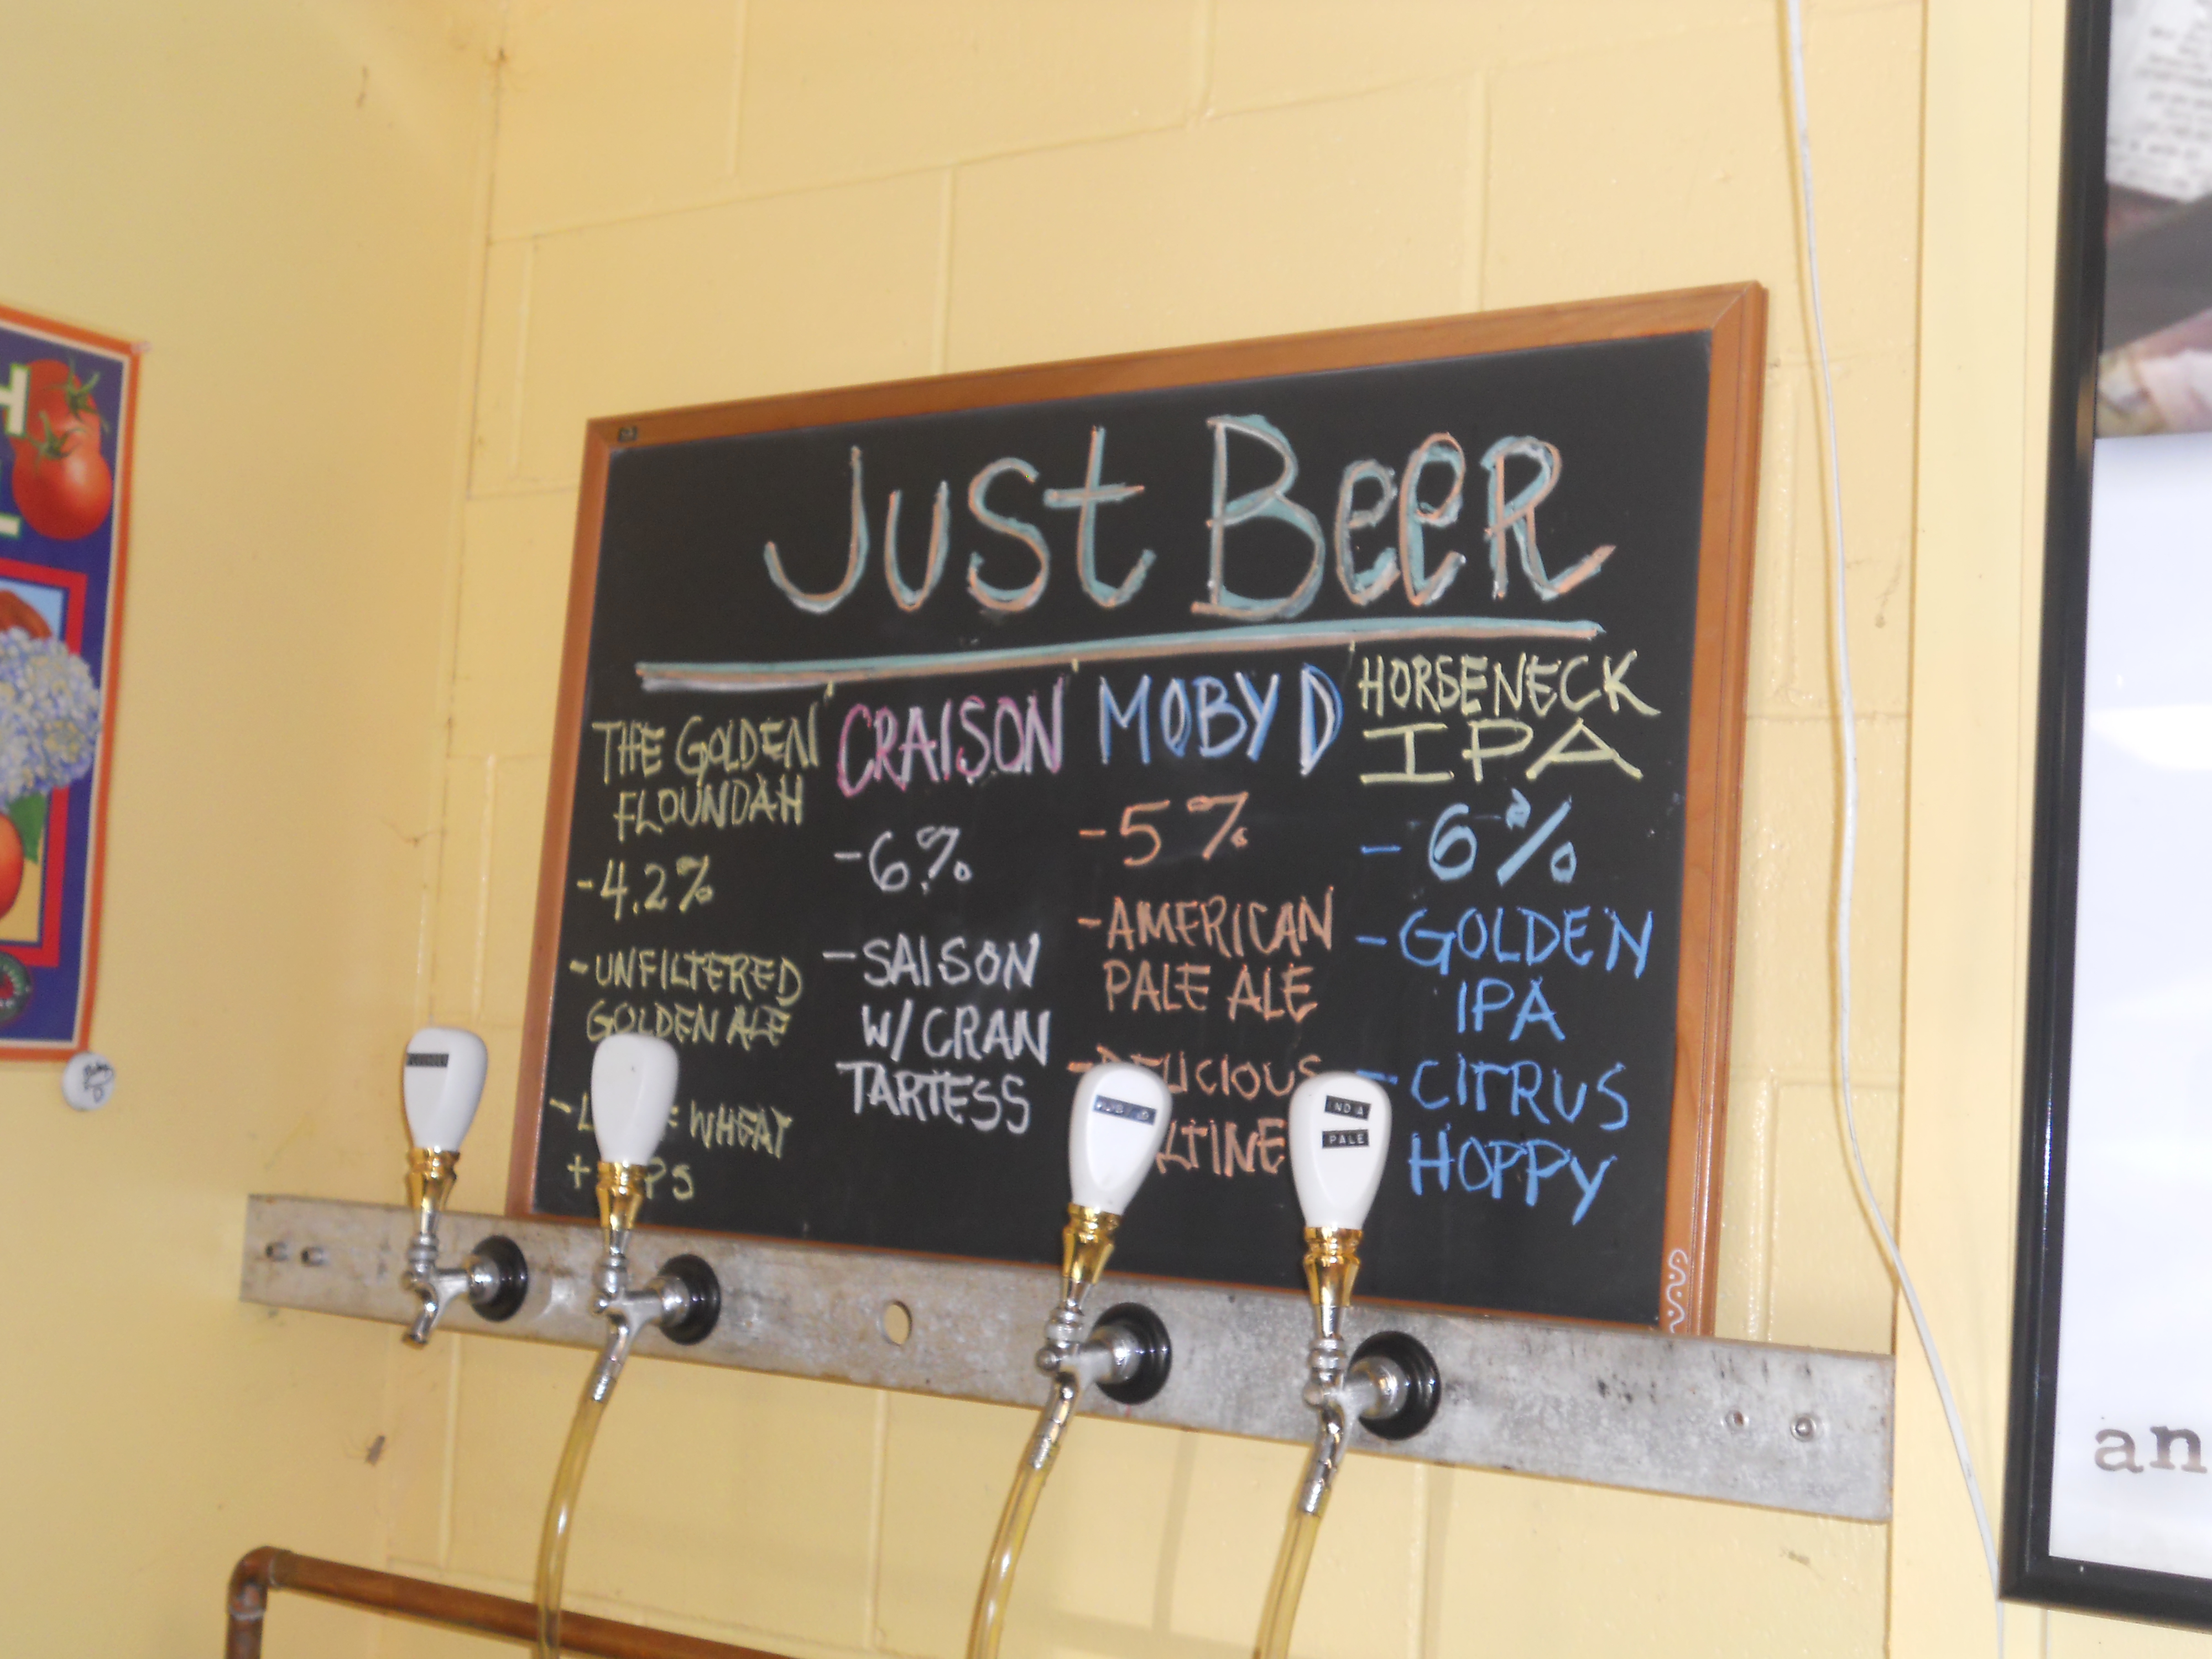 Just Beer
THE GOLDEN
FLOUNDAH
-4.2%
-UNFILTERED
GOLDEN ALE
WHEAT
+
CRAISON
-6%
-SAISON
W/ CRAN
TARTESS
MOBY D
-5%
-AMERICAN
PALE ALE
-DELICIOUS
HORSENECK
IPA
-6%
-GOLDEN
IPA
-CITRUS
HOPPY
INDIA
PALE
an